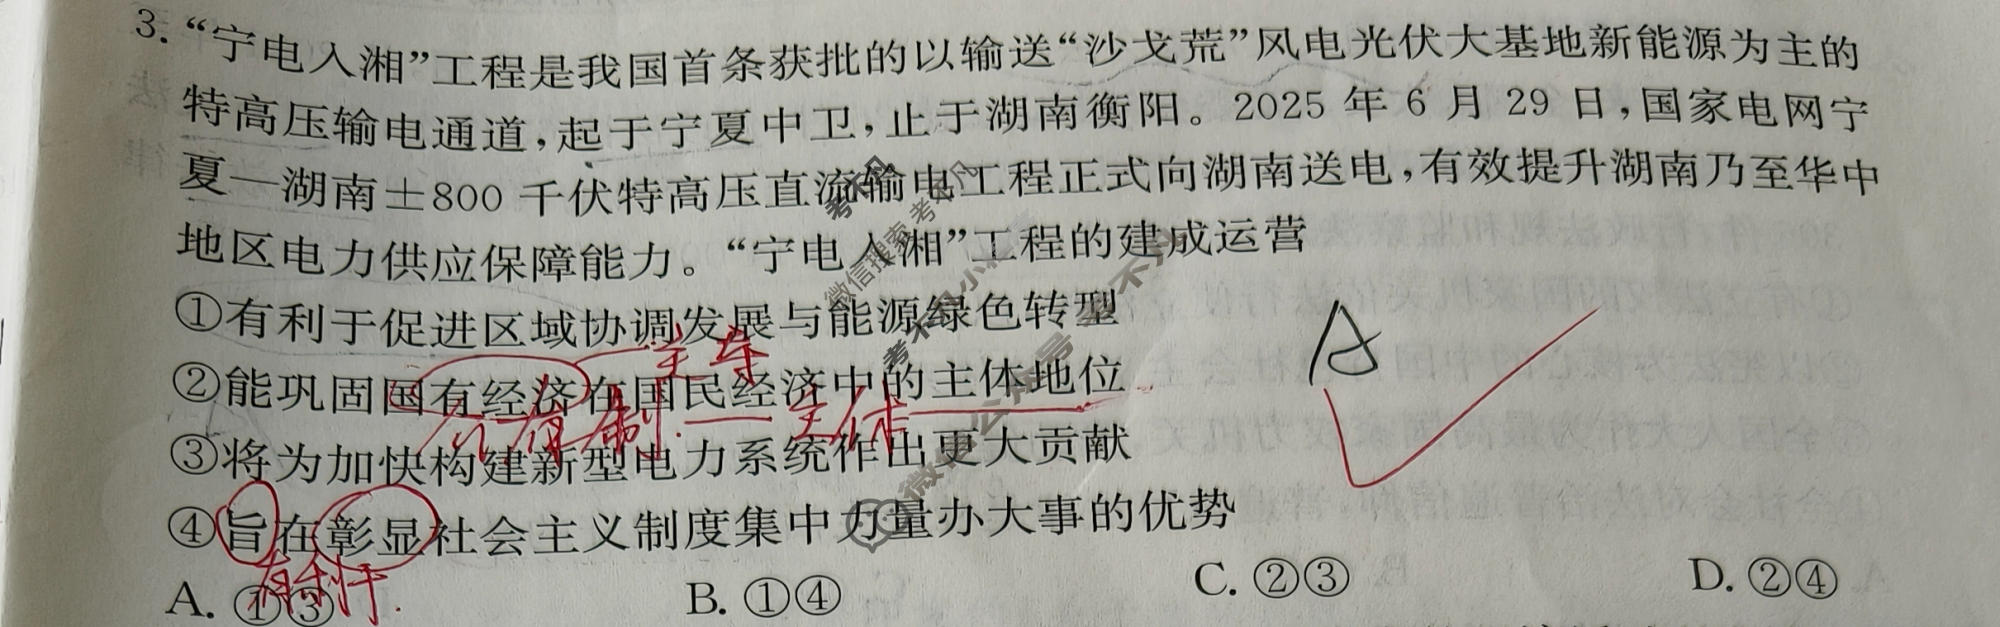 3. “宁电入湘”工程是我国首条获批的以输送“沙戈荒”风电光伏大基地新能源为主的
特高压输电通道，起于宁夏中卫，止于湖南衡阳。2025 年 6 月 29 日，国家电网宁
夏—湖南±800 千伏特高压直流输电工程正式向湖南送电，有效提升湖南乃至华中
地区电力供应保障能力。“宁电入湘”工程的建成运营
①有利于促进区域协调发展与能源绿色转型
主导
A
②能巩固国有经济在国民经济中的主体地位
公有制——主体
③将为加快构建新型电力系统作出更大贡献
④旨在彰显社会主义制度集中力量办大事的优势
有利于
A. ①③ B. ①④ C. ②③ D. ②④
微信搜索